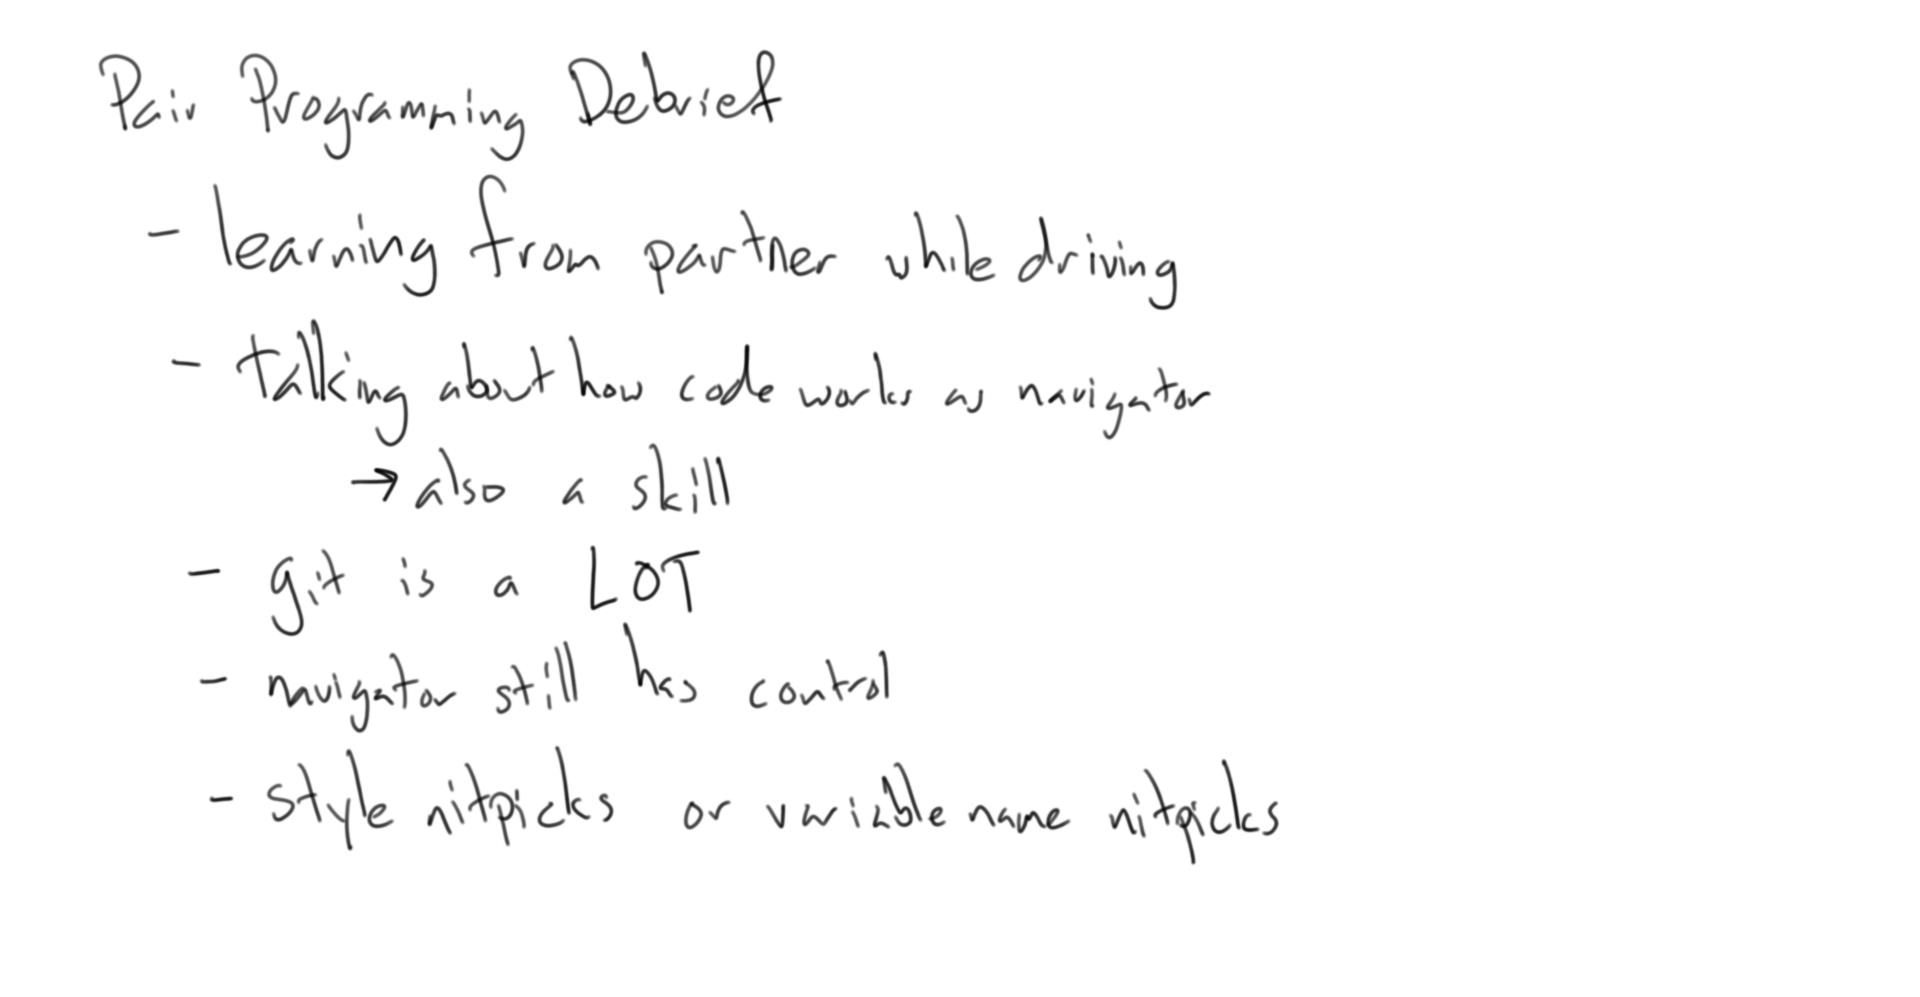 Pair Programming Debrief
- learning from partner while driving
- talking about how code works as navigator
→ also a skill
- git is a LOT
- navigator still has control
- style nitpicks or variable name nitpicks